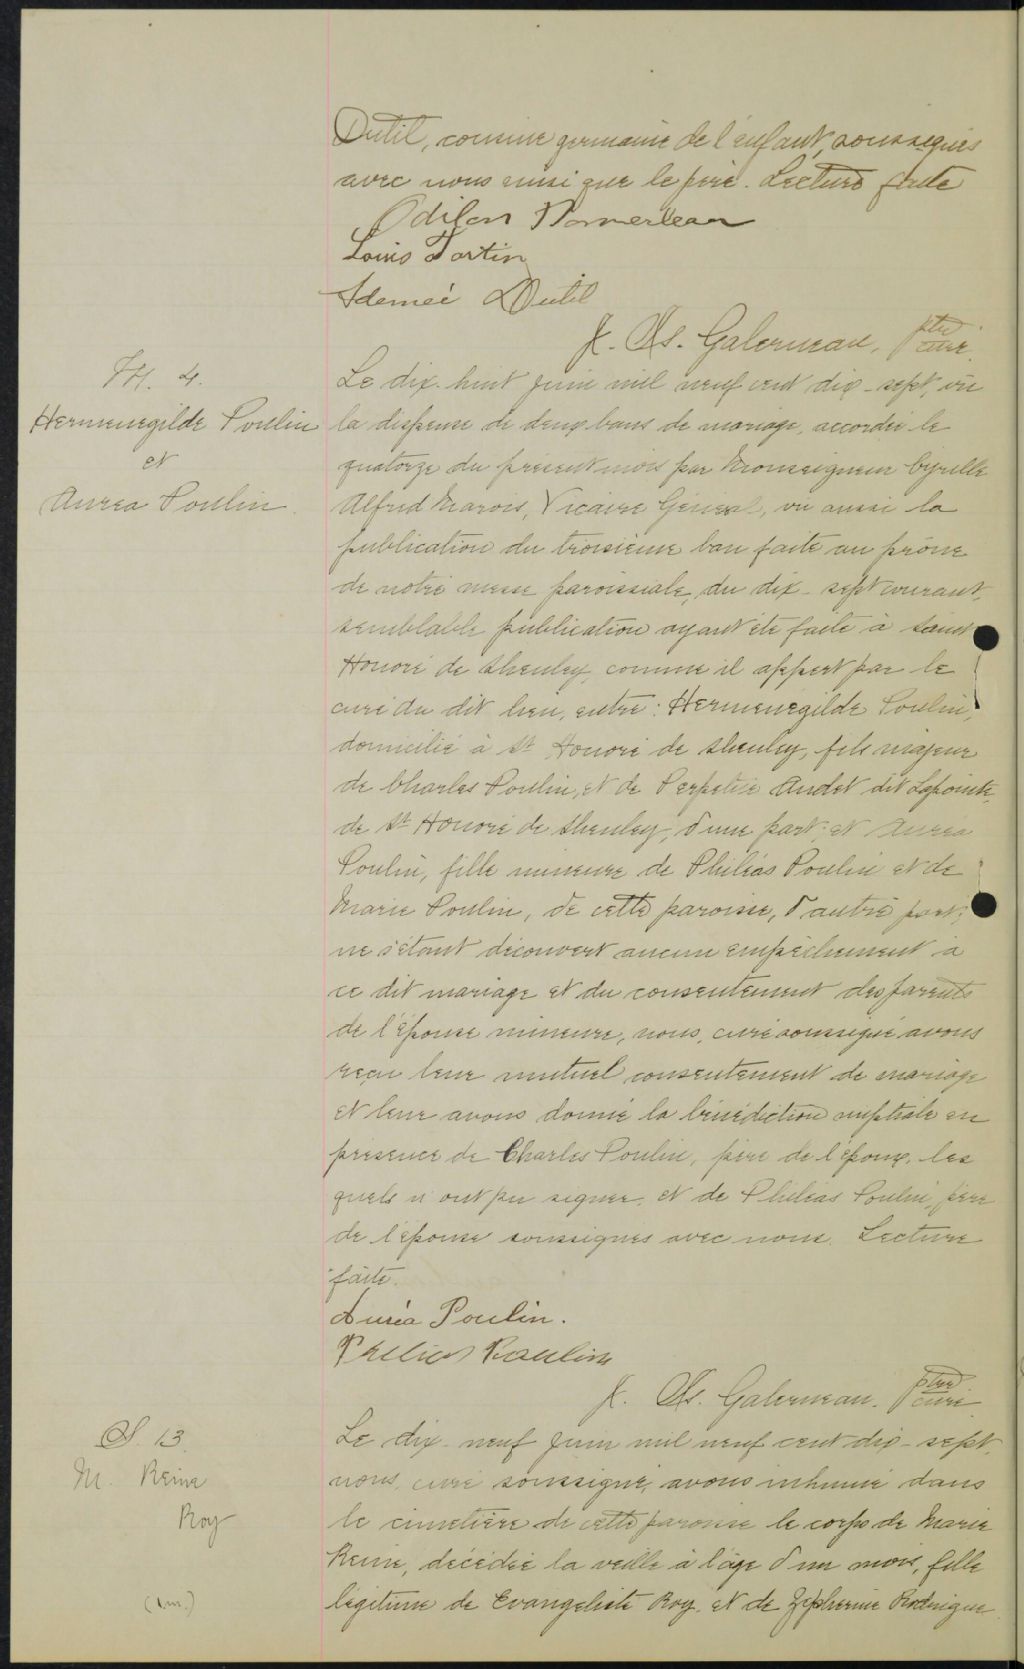 Dutil, cousine germaine de l'enfant, soussignés
avec nous ainsi que le père. Lecture faite
Odilon Pomerleau
Louis Fortin
Dutil
J. Galerneau, ptre curé.
M. 4.
Hermenegilde Poulin
et
Aurea Poulin.
Le dix-huit juin mil neuf cent dix-sept, vu
la dispense de deux bans de mariage, accordée le
quatorze du présent mois par Monseigneur Cyrille
Alfred Marois, Vicaire Général, vu aussi la
publication du troisième ban faite au prône
de notre messe paroissiale, du dix-sept courant,
semblable publication ayant été faite à Saint
Honoré de Shenley, comme il appert par le
curé du dit lieu, entre: Hermenégilde Poulin,
domicilié à St Honoré de Shenley, fils majeur
de Charles Poulin, et de Perpétue Audet dit Lapointe,
de St Honoré de Shenley, d'une part; et Auréa
Poulin, fille mineure de Philéas Poulin et de
Marie Poulin, de cette paroisse, d'autre part;
ne s'étant découvert aucun empêchement à
ce dit mariage et du consentement des parents
de l'épouse mineure, nous, curé soussigné avons
reçu leur mutuel consentement de mariage
et leur avons donné la bénédiction nuptiale en
présence de Charles Poulin, père de l'époux, les
quels n'ont pu signer, et de Philéas Poulin, père
de l'épouse soussignés avec nous. Lecture
faite.
Auréa Poulin.
Philias Poulin
J. Galerneau. ptre curé
S 13.
M. Reine
Roy
(1.m.)
Le dix-neuf juin mil neuf cent dix-sept,
nous, curé soussigné, avons inhumé dans
le cimetière de cette paroisse le corps de Marie
Reine, décédée la veille à l'âge d'un mois, fille
légitime de Evangeliste Roy, et de Zépherine Rodrigue.